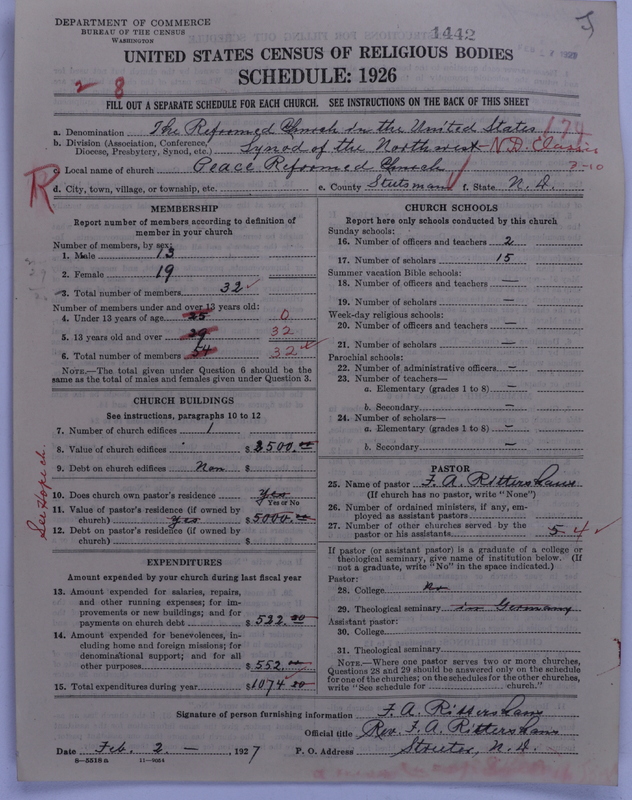 DEPARTMENT OF COMMERCE
BUREAU OF THE CENSUS
WASHINGTON
1442
UNITED STATES CENSUS OF RELIGIOUS BODIES
SCHEDULE: 1926
2-8
FILL OUT A SEPARATE SCHEDULE FOR EACH CHURCH. SEE INSTRUCTIONS ON THE BACK OF THIS SHEET
a. Denomination The Reformed Church in the United States 174
b. Division (Association, Conference, Diocese, Presbytery, Synod, etc.) Synod of the Northwest - N.D. Classis
c. Local name of church Peace Reformed Church 7-10
R
d. City, town, village, or township, etc. e. County Stutsman f. State N. D.
MEMBERSHIP
Report number of members according to definition of
member in your church
Number of members, by sex:
1. Male 13
2. Female 19
3. Total number of members 32
Number of members under and over 13 years old:
4. Under 13 years of age 25 0
5. 13 years old and over 29 32
6. Total number of members 54 32
NOTE.—The total given under Question 6 should be the
same as the total of males and females given under Question 3.
CHURCH BUILDINGS
See instructions, paragraphs 10 to 12
7. Number of church edifices 1
8. Value of church edifices $2500.00
9. Debt on church edifices Non $
10. Does church own pastor's residence Yes
Yes or No
11. Value of pastor's residence (if owned by
church) yes $5000.00
12. Debt on pastor's residence (if owned by
church) $
EXPENDITURES
Amount expended by your church during last fiscal year
13. Amount expended for salaries, repairs,
and other running expenses; for im-
provements or new buildings; and for
payments on church debt $522.00
14. Amount expended for benevolences, in-
cluding home and foreign missions; for
denominational support; and for all
other purposes $552.00
15. Total expenditures during year $1074.00
CHURCH SCHOOLS
Report here only schools conducted by this church
Sunday schools:
16. Number of officers and teachers 2
17. Number of scholars 15
Summer vacation Bible schools:
18. Number of officers and teachers —
19. Number of scholars —
Week-day religious schools:
20. Number of officers and teachers —
21. Number of scholars —
Parochial schools:
22. Number of administrative officers —
23. Number of teachers—
a. Elementary (grades 1 to 8) —
b. Secondary —
24. Number of scholars—
a. Elementary (grades 1 to 8) —
b. Secondary —
PASTOR
25. Name of pastor F. A. Rittershaus
(If church has no pastor, write "None")
26. Number of ordained ministers, if any, em-
ployed as assistant pastors
27. Number of other churches served by the
pastor or his assistants 5 4
If pastor (or assistant pastor) is a graduate of a college or
theological seminary, give name of institution below. (If
not a graduate, write "No" in the space indicated.)
Pastor:
28. College no
29. Theological seminary in Germany
Assistant pastor:
30. College
31. Theological seminary
NOTE.—Where one pastor serves two or more churches,
Questions 28 and 29 should be answered only on the schedule
for one of the churches; on the schedules for the other churches,
write "See schedule for church."
Signature of person furnishing information F. A. Rittershaus
Official title Rev. F. A. Rittershaus
Date Feb. 2. —, 1927 P. O. Address Streeter, N. D.
8-5518a 11-9054